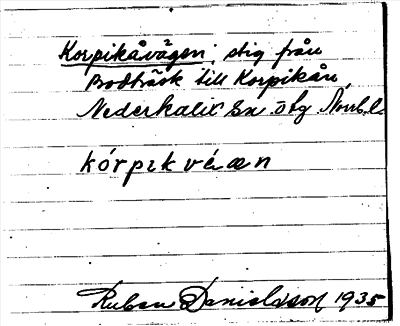 Korpikåvägen, stig från
Brodträsk till Korpikån,
Nederkalix sn. otg Norrb.l.
kórpɪkvéæn
Ruben Danielsson 1935